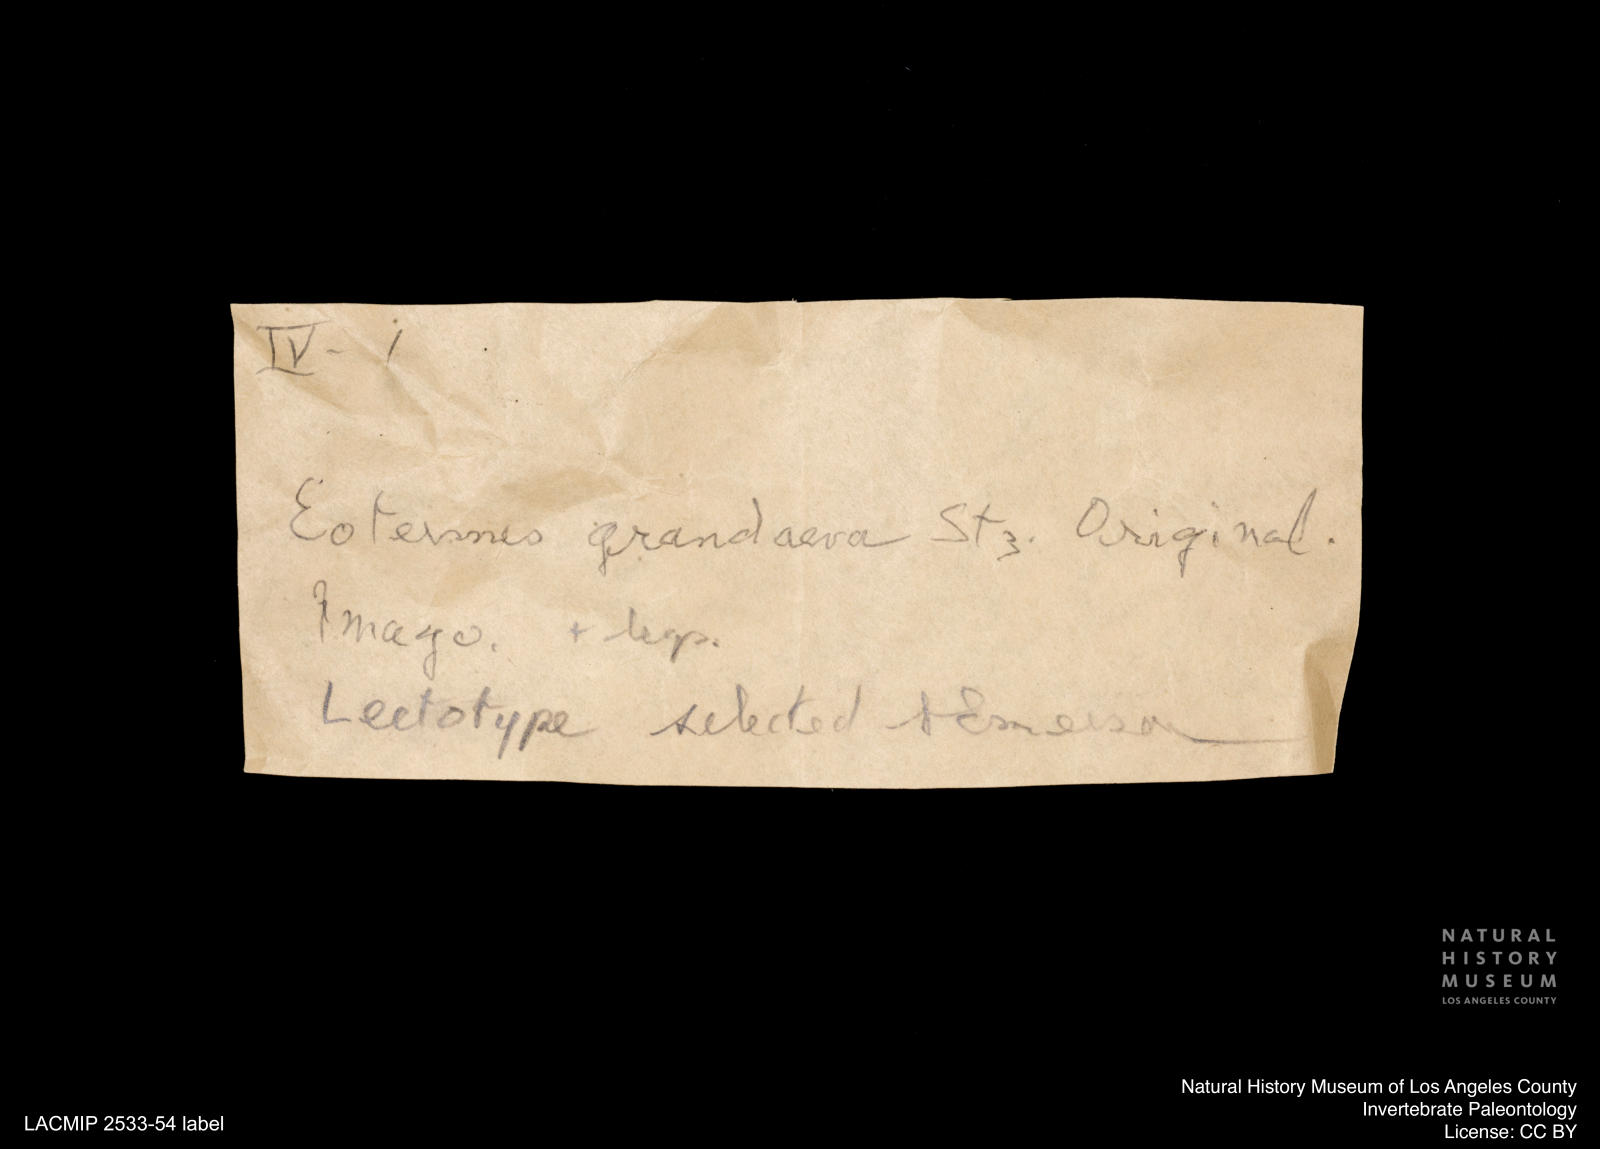 IV - i
Eotermes grandaeva Stz. Original.
Imago. + legs.
Lectotype selected A Emerson
NATURAL
HISTORY
MUSEUM
LOS ANGELES COUNTY
Natural History Museum of Los Angeles County
Invertebrate Paleontology
License: CC BY
LACMIP 2533-54 label